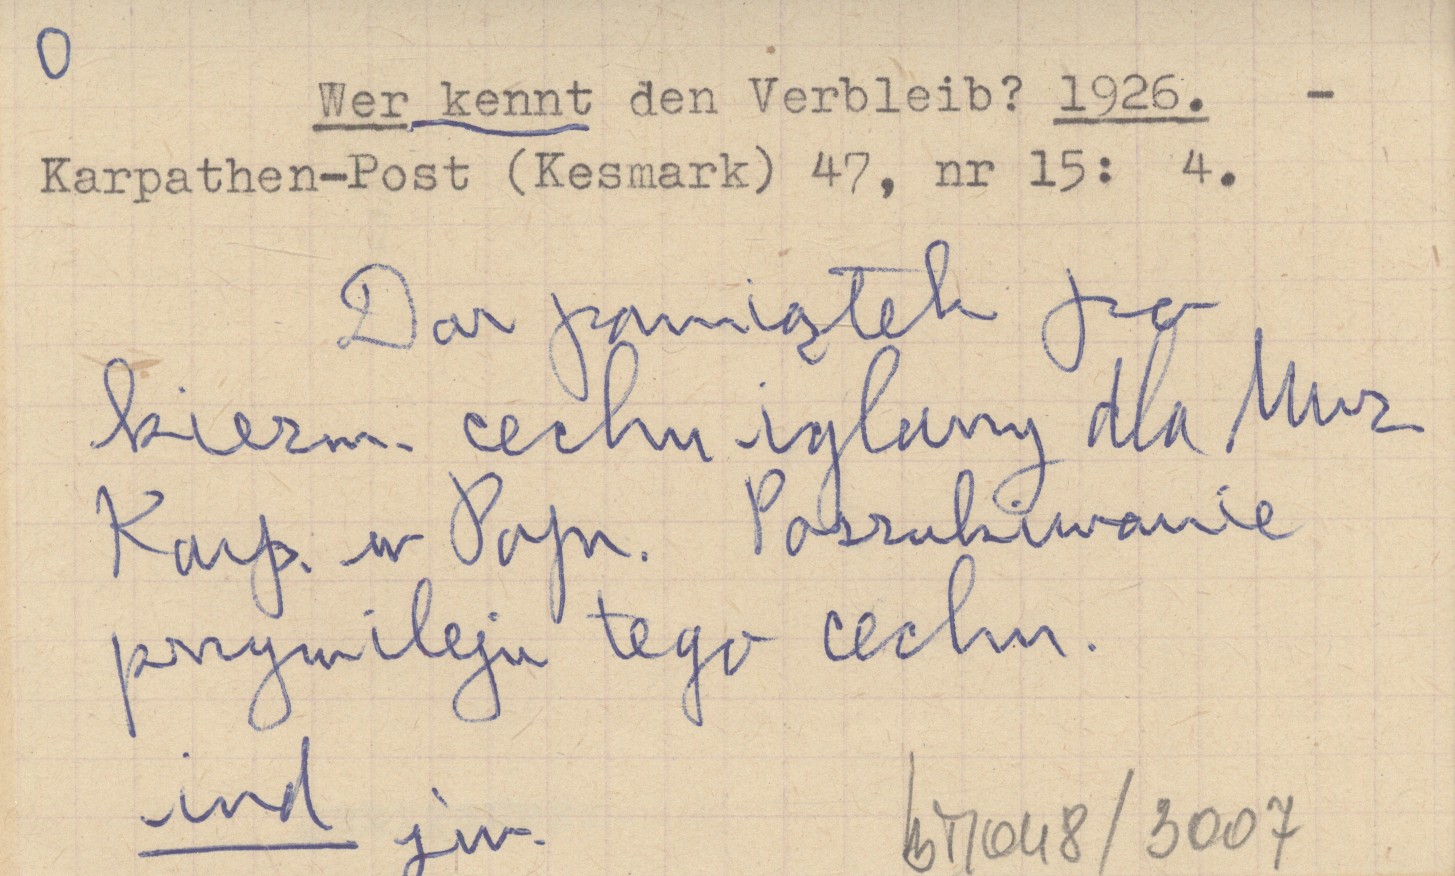 O
Wer kennt den Verbleib? 1926. -
Karpathen-Post (Kesmark) 47, nr 15: 4.
Dar pamiątek po
kiezm. cechu iglarzy dla Muz
Karp. w Popr. Poszukiwanie
przywileju tego cechu.
ind jw.
/3007